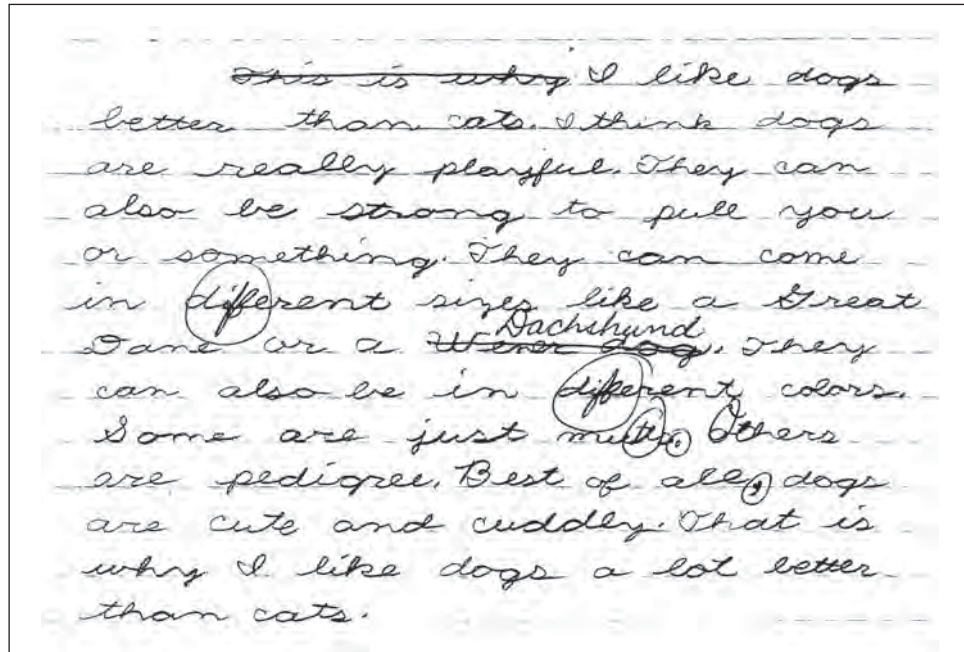 This is why I like dogs
better than cats. I think dogs
are really playful. They can
also be strong to pull you
or something. They can come
in different sizes like a Great
Dachshund
Dane or a Wener dog. They
can also be in different colors.
Some are just mutts. Others
are pedigree. Best of all, dogs
are cute and cuddly. That is
why I like dogs a lot better
than cats.